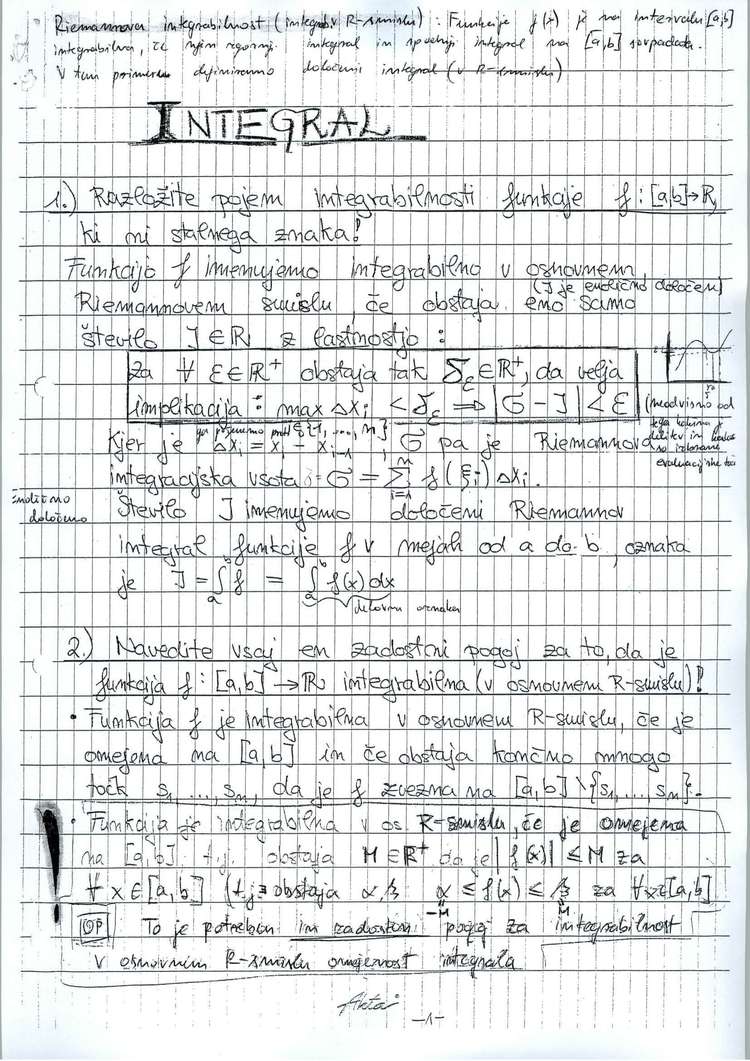 Riemannova integrabilnost (integrab. v R-smislu): Funkcija f(x) je na intervalu [a,b]
integrabilna, če njen zgornji integral in spodnji integral na [a,b] sovpadata.
V tem primeru definiramo določeni integral (v R-smislu)
INTEGRAL
1.) Razložite pojem integrabilnosti funkcije f: [a,b]→R,
ki ni stalnega znaka!
Funkcijo f imenujemo integrabilno v osnovnem
(J je enolično določen)
Riemannovem smislu, če obstaja eno samo
število J∈R z lastnostjo:
Za ∀ ε∈R⁺ obstaja tak δ_ε∈R⁺, da velja
implikacija: max Δx_i < δ_ε ⇒ |σ - J| < ε
(neodvisno od
Kjer je Δx_i = x_i - x_{i-1}, σ pa je Riemannova
delitev in kako
so izbrane
evaluacijske točke
integracijska vsota := σ = Σ_{i=1}^{n} f(ξ_i) Δx_i.
enolično
določeno
Število J imenujemo določeni Riemannov
integral funkcije f v mejah od a do b, oznaka
je J = ∫_a^b f = ∫_a^b f(x) dx
delovna oznaka
2.) Navedite vsaj en zadostni pogoj za to, da je
funkcija f: [a,b] → R integrabilna (v osnovnem R-smislu)!
• Funkcija f je integrabilna v osnovnem R-smislu, če je
omejena na [a,b] in če obstaja končno mnogo
točk s₁, ..., s_n, da je f zvezna na [a,b] \ {s₁, ..., s_n}.
! • Funkcija je integrabilna v os. R-smislu, če je omejena
na [a,b] t.j. obstaja M∈R⁺ da je |f(x)| ≤ M za
∀ x∈[a,b] (t.j. obstaja α, β α ≤ f(x) ≤ β za ∀x∈[a,b]
-M M
OP To je potreben in zadosten pogoj za integrabilnost
v osnovnim R-smislu omejenost integrala
-1-